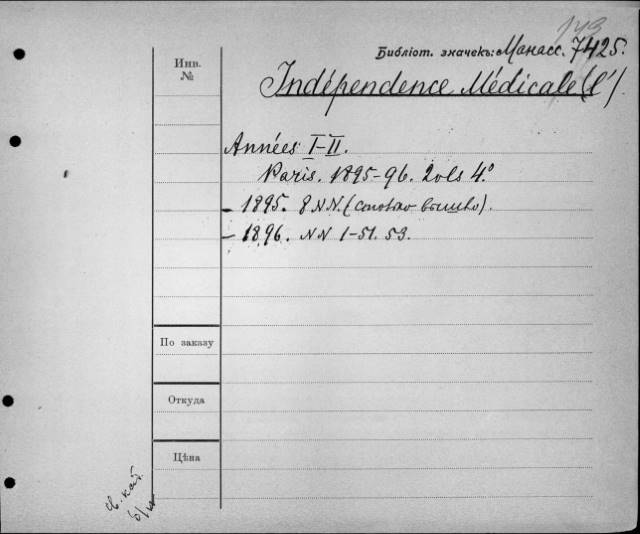 143
Библіот. значекъ: Манасс. 7425.
Инв.
№
Indépendence Médicale (l')
Années I-II.
Paris. 1895-96. 2 vols 4º
- 1895. 8 NN. (сколько вышло).
- 1896. NN 1-51. 53.
По заказу
Откуда
Цѣна